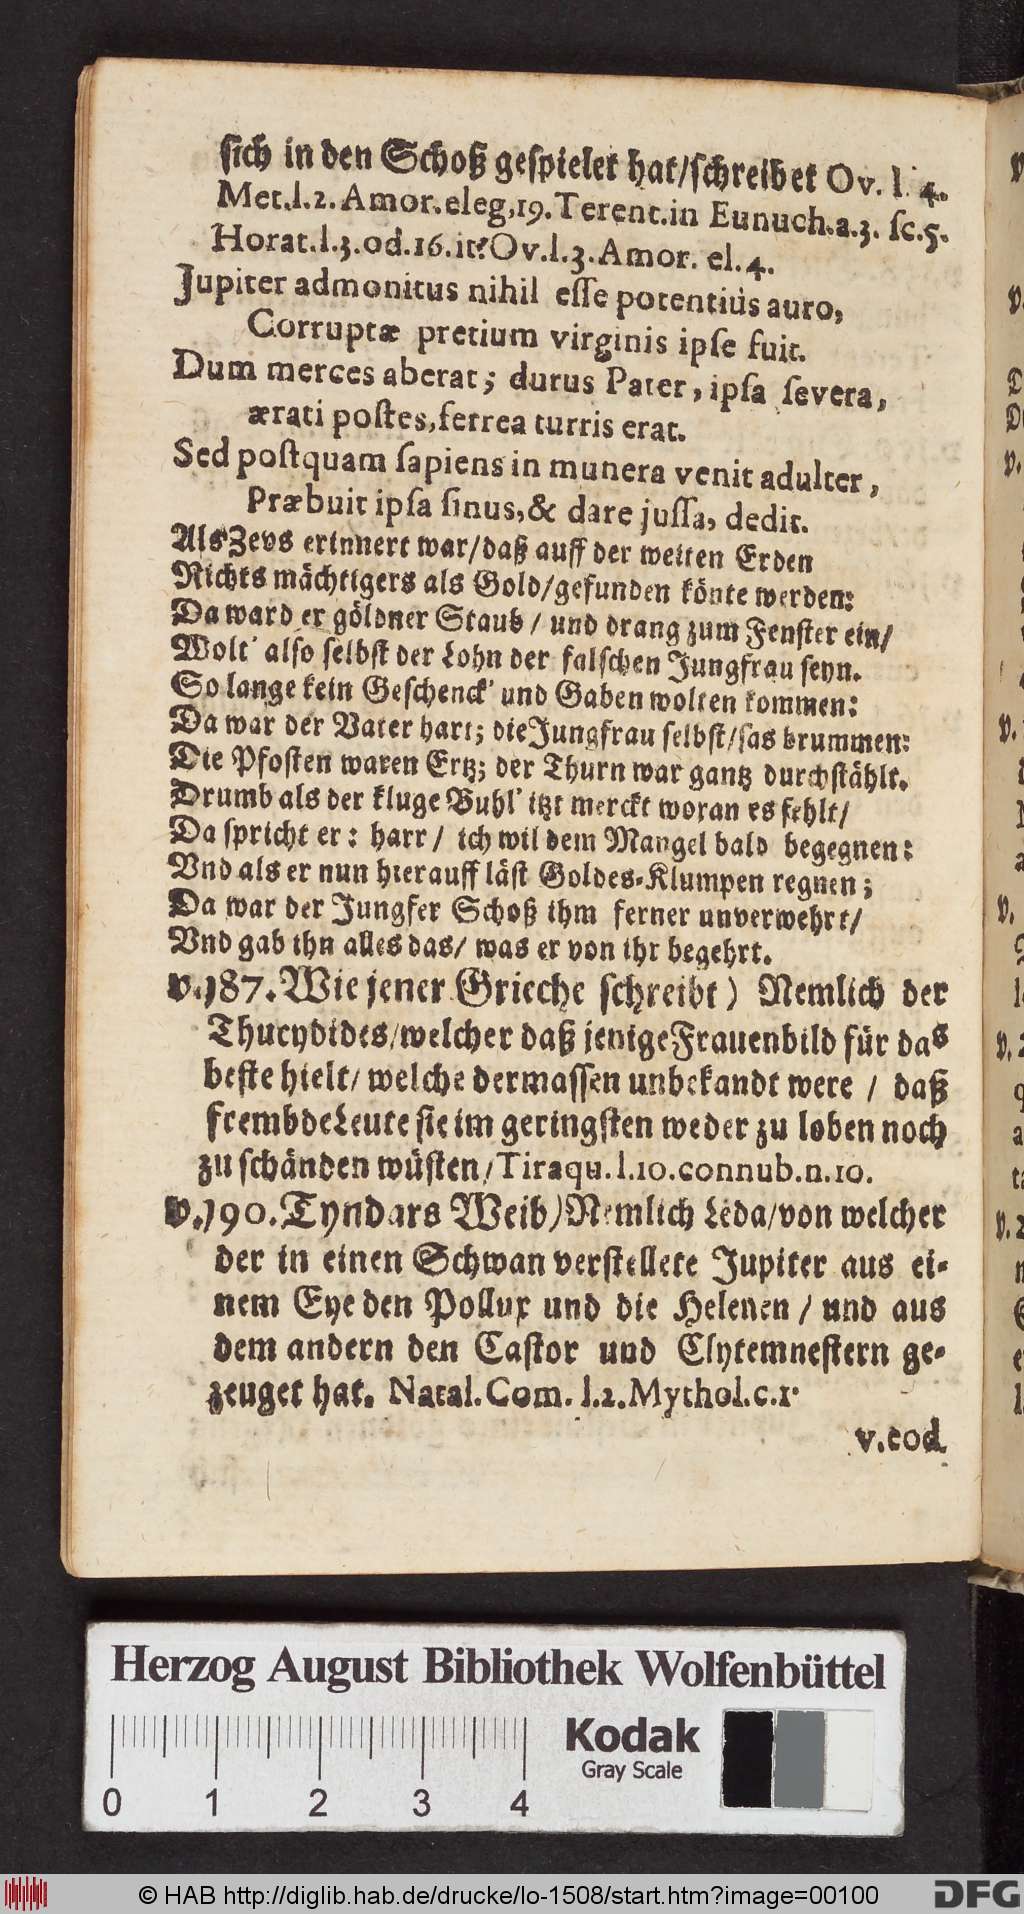 sich in den Schoß gespielet hat/schreibet Ov. l. 4.
Met.l.2. Amor.eleg,19. Terent.in Eunuch.a.3. ſc.5.
Horat.l.3.od.16.it? Ov.l.3.Amor. el.4.
Jupiter admonitus nihil eſſe potentiùs auro,
Corruptæ pretium virginis ipſe fuit.
Dum merces aberat; durus Pater, ipſa ſevera,
ærati poſtes, ferrea turris erat.
Sed poſtquam ſapiens in munera venit adulter,
Præbuit ipſa ſinus, & dare juſſa, dedit.
Als Zevs erinnert war/daß auff der weiten Erden
Nichts mächtigers als Gold/gefunden könte werden:
Da ward er göldner Staub/ und drang zum Fenster ein/
Wolt' also selbst der Lohn der falschen Jungfrau seyn.
So lange kein Geschenck' und Gaben wolten kommen:
Da war der Vater hart; die Jungfrau selbst/sas brummen:
Die Pfosten waren Ertz; der Thurn war gantz durchstählt.
Drumb als der kluge Buhl' itzt merckt woran es fehlt/
Da spricht er: harr/ ich wil dem Mangel bald begegnen:
Vnd als er nun hierauff läst Goldes-Klumpen regnen;
Da war der Jungfer Schoß ihm ferner unverwehrt/
Vnd gab ihn alles das/ was er von ihr begehrt.
v.187. Wie jener Grieche schreibt) Nemlich der
Thucydides/welcher daß jenige Frauenbild für das
beste hielt/ welche dermassen unbekandt were / daß
frembde Leute sie im geringsten weder zu loben noch
zu schänden wüsten/Tiraqu.l.10.connub.n.10.
v.190. Tyndars Weib) Nemlich Leda/von welcher
der in einen Schwan verstellete Jupiter aus ei-
nem Eye den Pollux und die Helenen / und aus
dem andern den Castor und Clytemnestern ge-
zeuget hat. Natal. Com. l.2.Mythol.c.1.
v.eod.
Herzog August Bibliothek Wolfenbüttel
Kodak
Gray Scale
0 1 2 3 4
© HAB http://diglib.hab.de/drucke/lo-1508/start.htm?image=00100
DFG